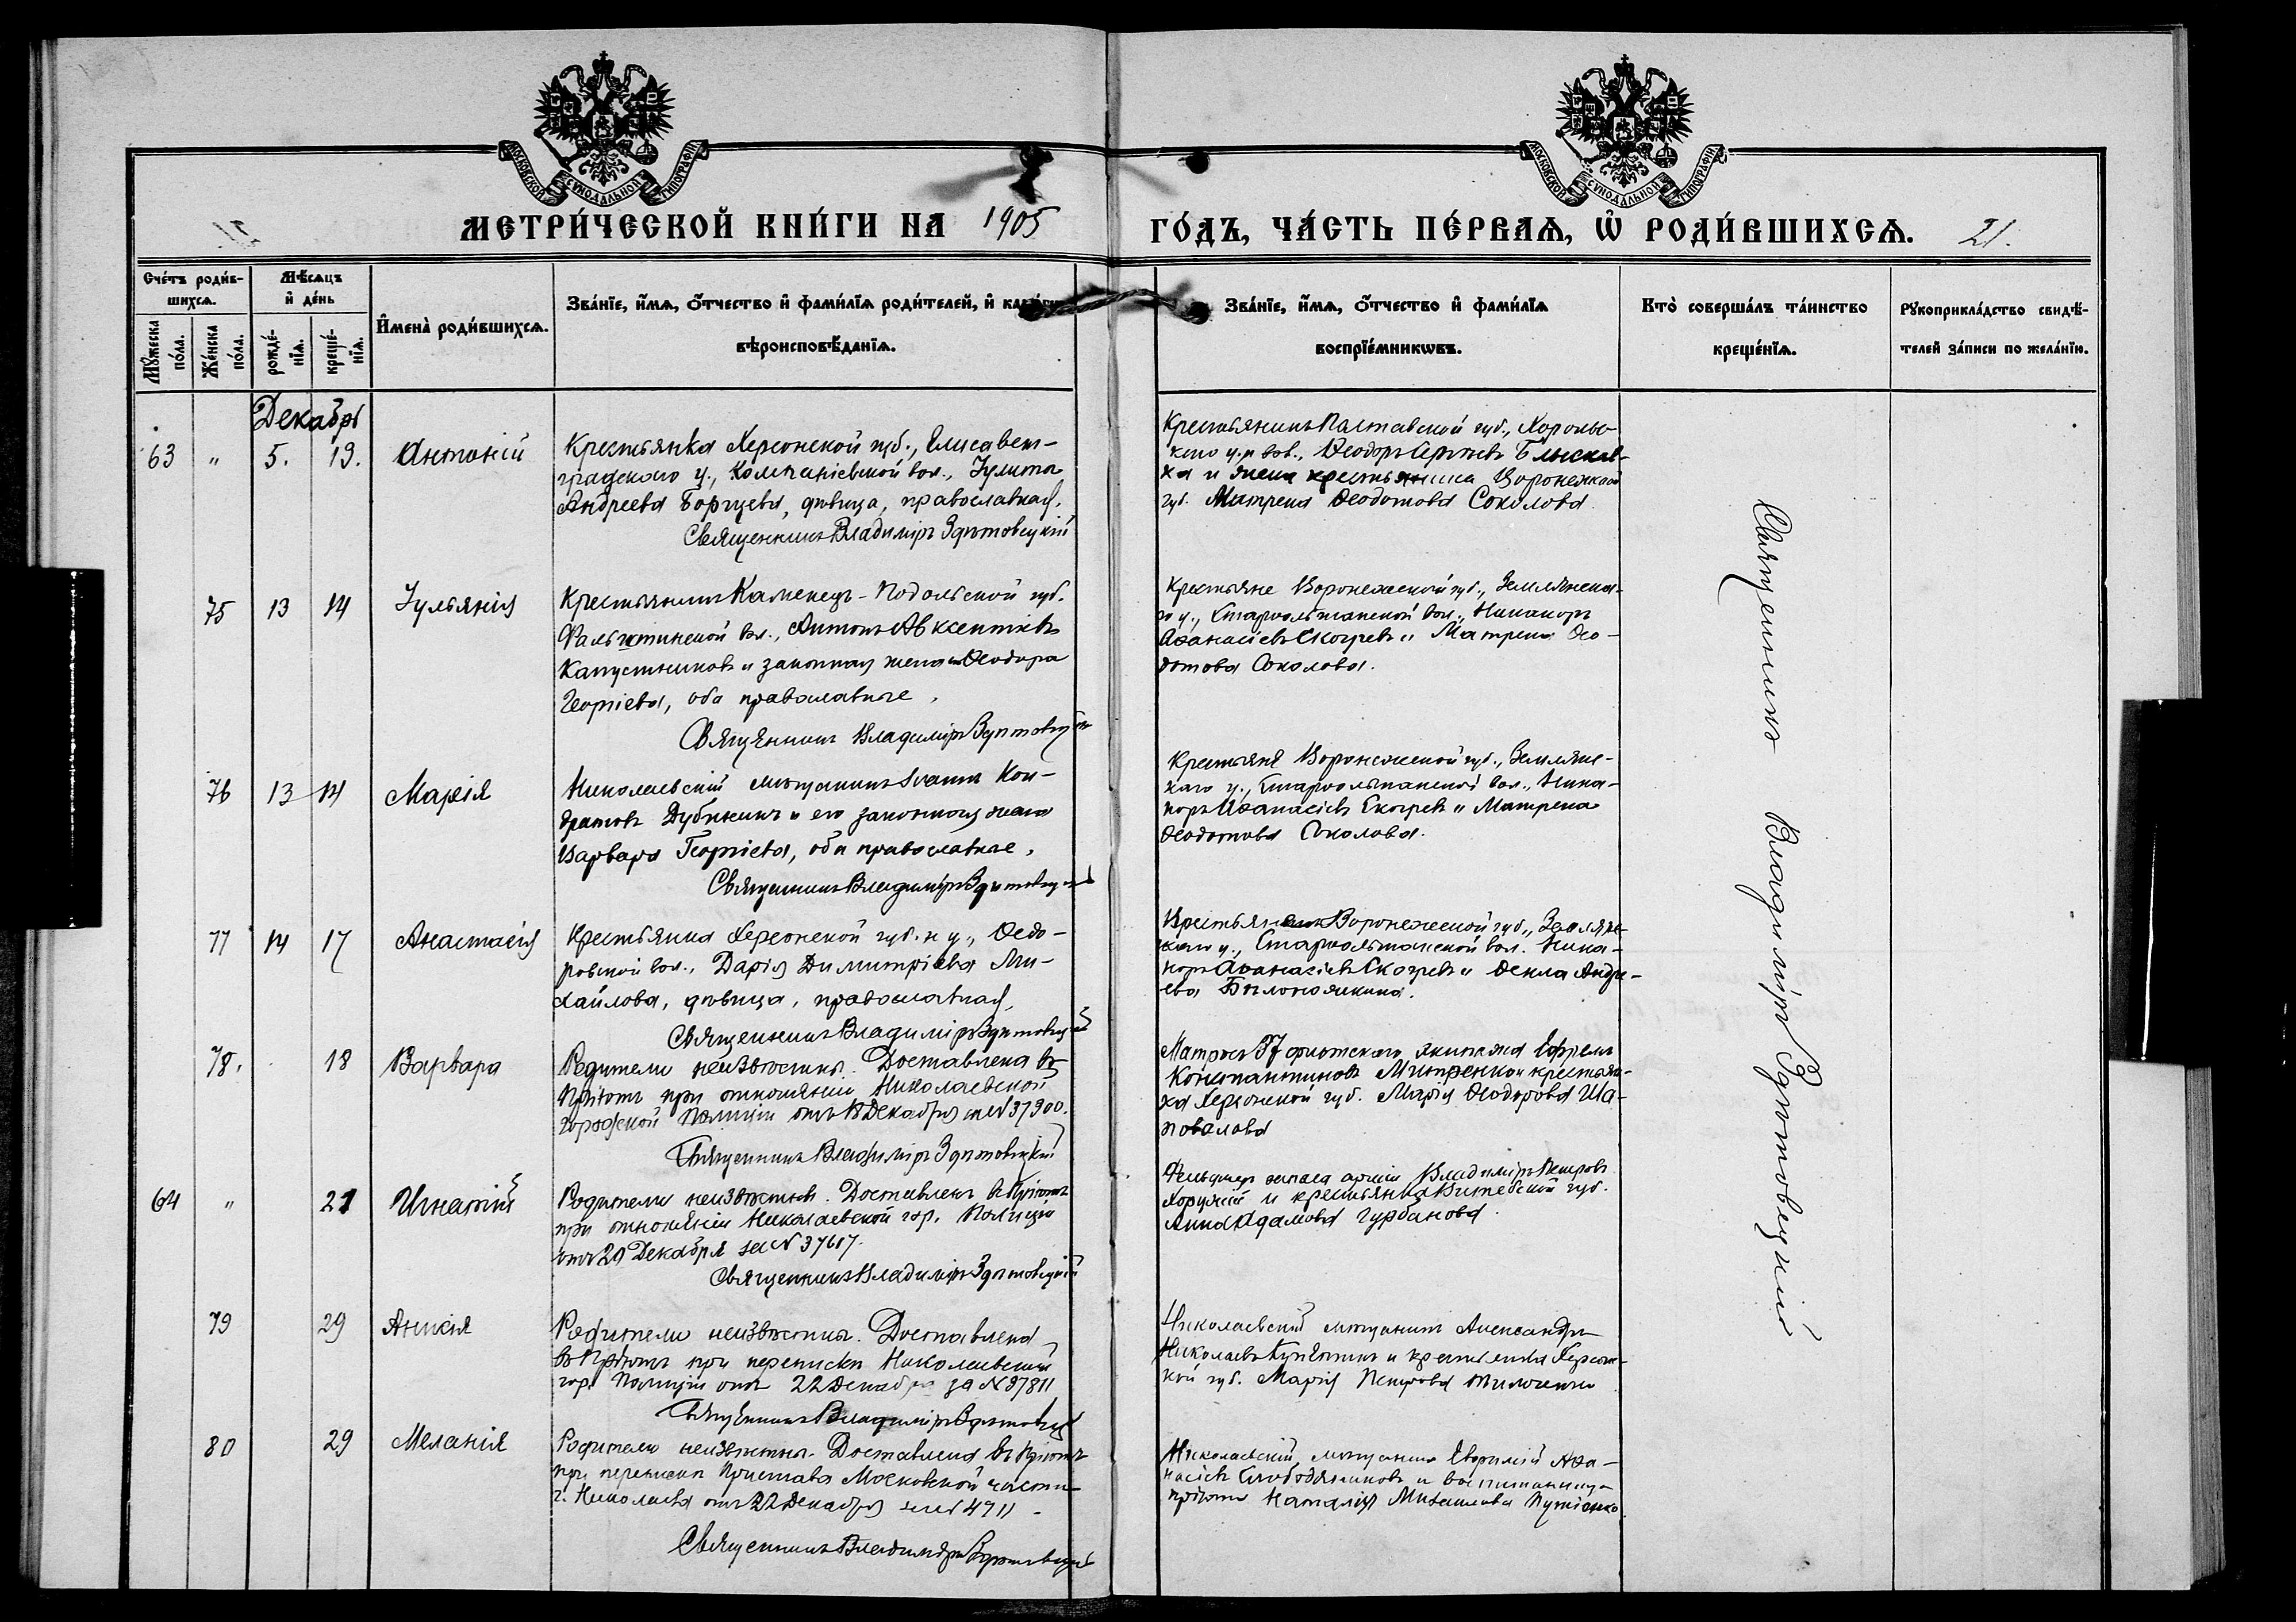 МОСКОВСКОЙ СУНОДАЛЬНОЙ ТИПОГРАФІИ
МОСКОВСКОЙ СУНОДАЛЬНОЙ ТИПОГРАФІИ
МЕТРИ́ЧЕСКОЙ КНИ́ГИ НА 1905
ГО́ДЪ, ЧА́СТЬ ПЕ́РВАѦ, Ѡ҆ РОДИ́ВШИХСѦ. 21.
Сче́тъ роди́в-
шихсѧ.
Мꙋ́жеска по́ла.
Же́нска по́ла.
Мѣ́сѧцъ
и҆ де́нь
рожде́-
нїѧ.
креще́-
нїѧ.
И҆мена̀ роди́вшихсѧ.
Зва́нїе, и҆́мѧ, ѻ҆́тчество и҆ фами́лїѧ роди́телей, и҆
вѣроисповѣ́данїѧ.
Зва́нїе, и҆́мѧ, ѻ҆́тчество и҆ фами́лїѧ
воспрїе́мникѡвъ.
Кто̀ соверша́лъ та́инство
креще́нїѧ.
Рꙋкоприкла́дство свидѣ́-
телей за́писи по жела́нїю.
Декабрь
63 " 5. 19. Антоній
Крестьянка Херсонской губ., Елисавет-
градскаго у., Компаніевской вол., Іулита
Андреева Борщева, дѣвица, православная.
Священникъ Владиміръ Здѣтовецкій
Крестьянинъ Полтавской губ., Хороль-
Ѳеодоръ
и крестьянка Воронежской
губ. Матрена Ѳеодотова Соколова
75 13 14 Іульянія
Крестьянинъ Каменецъ-Подольской губ.
вол., Антонъ Авксентіевъ
Капустниковъ и законная жена Ѳеодора
Георгіева, оба православные.
Священникъ Владиміръ Здѣтовецкій
Крестьяне Воронежской губ., Землянска-
го у., Староольшанской вол., Никаноръ
Аѳанасіевъ и Матрена Ѳео-
дотова Соколова.
76 13 14 Марія
Николаевскій мѣщанинъ Іоаннъ Кон-
дратовъ Дубининъ и его законная жена
Варвара Георгіева, оба православные.
Священникъ Владиміръ Здѣтовецкій
Крестьяне Воронежской губ., Землян-
скаго у., Староольшанской вол., Ника-
норъ Аѳанасіевъ и Матрена
Ѳеодотова Соколова.
77 14 17 Анастасія
Крестьянка Херсонской губ. и у., Ѳедо-
ровской вол., Дарія Димитріева Ми-
хайлова, дѣвица, православная.
Священникъ Владиміръ Здѣтовецкій
Воронежской губ., Землян-
скаго у., Староольшанской вол. Ника-
норъ Аѳанасіевъ и Ѳекла Андре-
ева
78. 18 Варвара
Родители неизвѣстны. Доставлена въ
Пріютъ при отношеніи Николаевской
городской Полиціи отъ 18 Декабря за № 37300.
Священникъ Владиміръ Здѣтовецкій
Матросъ 37 флотскаго экипажа Ефремъ
Константиновъ Митренко и крестьян-
ка Херсонской губ. Марія Ѳеодорова Ша-
повалова
64 " 21 Игнатій
Родители неизвѣстны. Доставленъ въ Пріютъ
при отношеніи Николаевской гор. Полиціи
отъ 20 Декабря за № 37617.
Священникъ Владиміръ Здѣтовецкій
Фельдшеръ запаса арміи Владиміръ Петровъ
Хоружій и крестьянка Витебской губ.
Анна Адамова Гурбанова
79 29 Анисія
Родители неизвѣстны. Доставлена
въ Пріютъ при перепискѣ Николаевской
гор. Полиціи отъ 22 Декабря за № 37811
Священникъ Владиміръ Здѣтовецкій
Николаевскій мѣщанинъ Александръ
Николаевъ и крестьянка Херсон-
ской губ. Марія Петрова
80 29 Меланія
Родители неизвѣстны. Доставлена въ Пріютъ
при перепискѣ Пристава Московской части
г. Николаева отъ 22 Декабря за № 4711
Священникъ Владиміръ Здѣтовецкій
Николаевскій мѣщанинъ Евѳимій Аѳа-
насіевъ и воспитанница
пріюта Наталія Михаилова
Священникъ Владиміръ Здѣтовецкій